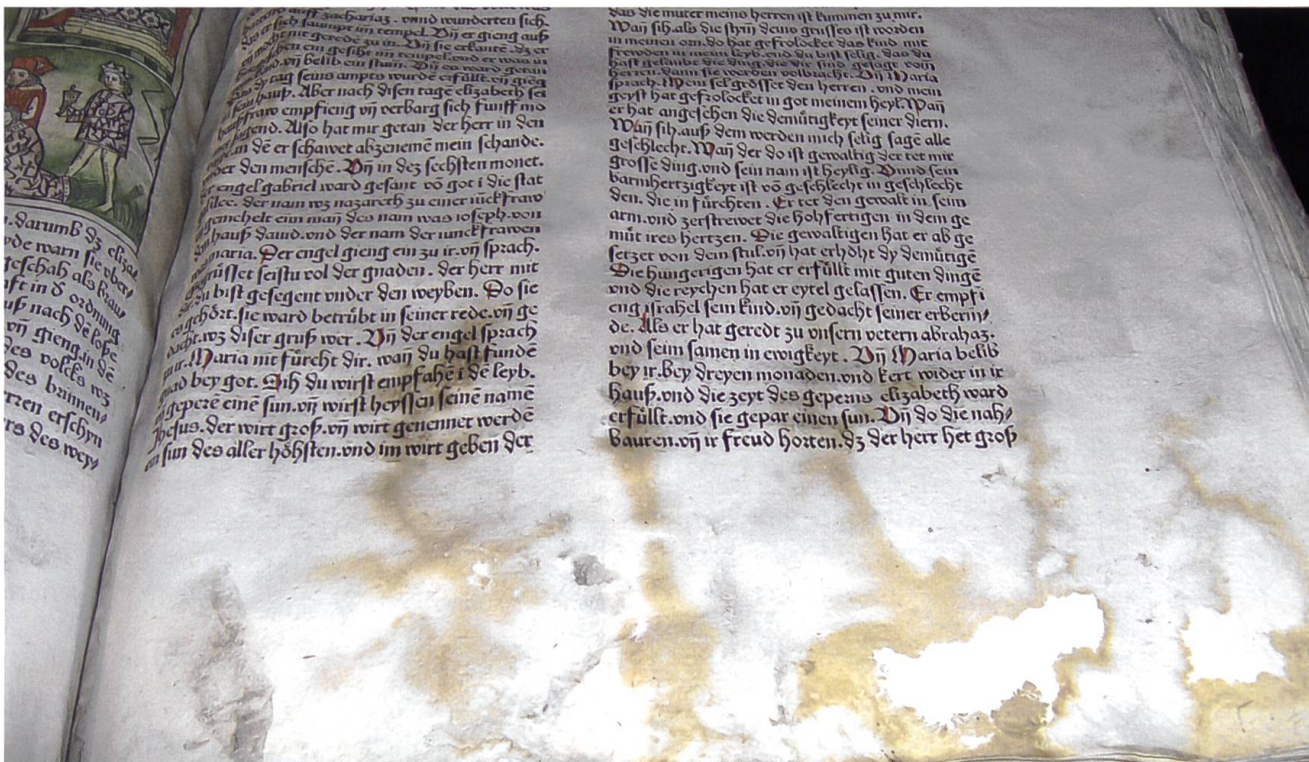 darumb dz elizab
yde warn sie vber/
geschah als zacha
aft in d' ordnung
auß nach d' lose
vn̄ gieng. in dē
des volcks wz
des brinnen/
rren erschyn
rs des wey/
auff zacharias. vnnd wunderten sich.
das er sich saumpt im tempel. Vn̄ er gieng auß
vn̄ mocht nit geredē zu in. Vn̄ sie erkantē. dz er
gesehen ein gesiht im tempel. vnd er was in
vn̄ belib ein stum. Vn̄ es ward getan
dy tag seins ampts wurdē erfüllt. er gieng
in sein hauß. Aber nach disen tagē elizabeth sei
haußfraw empfieng vn̄ verbarg sich fünff mo
sagend. Also hat mir getan der herr in den
tagen. in dē er schawet abzenemē mein schande.
vnder den menschē. Vn̄ in dez sechsten monet.
der engel gabriel ward gesant vō got i die stat
galilee. der nam wz nazareth zu einer iūckfraw
gemehelt eim man̄ des nam was ioseph. von
dem hauß dauid. vnd der nam der iunckfrawen
maria. Der engel gieng ein zu ir. vn̄ sprach.
gegrüsset seistu vol der gnaden. der herr mit
dir du bist gesegent vnder den weyben. Do sie
es gehört. sie ward betrübt in seiner rede. vn̄ ge
dacht. wz diser gruß wer. Vn̄ der engel sprach
zu ir. Maria nit fürcht dir. wan̄ du hast fundē
gnad bey got. Sih du wirst empfahē i dē leyb.
vn̄ geperē einē sun. vn̄ wirst heyssen seinē namē
Jhesus. der wirt groß. vn̄ wirt genennet werdē
ein sun des aller höhsten. vnd im wirt geben der
das die muter meins herren ist kummen zu mir.
Wan̄ sih. als die stym̄ deins gruses ist worden
in meinen orn. do hat gefrolocket das kind mit
frewden in mein leyb. vnd du bist selig. das du
hast gelaubt die ding. die dir sind gesagt vom
herren. wann sie werden volbracht. Vn̄ Maria
sprach. Mein sel grösset den herren. vnd mein
geyst hat gefrolocket in got meinem heyl. Wan̄
er hat angesehen die demütigkeyt seiner diern.
Wan̄ sih. auß dem werden mich selig sagē alle
geschlecht. Wan̄ der do ist gewaltig der tet mir
grosse ding. vnd sein nam ist heylig. Vnnd sein
barmhertzigkeyt ist vō geschlecht in geschlecht
den. die in fürchten. Er tet den gewalt in seim
arm. vnd zerstrewet die hohfertigen in dem ge
müt ires hertzen. Die gewaltigen hat er ab ge
setzet von dem stul. vn̄ hat erhöht dy demütigē
Die hungerigen hat er erfüllt mit guten dingē
vnd die reychen hat er eytel gelassen. Er empfi
eng israhel sein kind. vn̄ gedacht seiner erberm/
de. Als er hat geredt zu vnsern vetern abrahaz.
vnd seim samen in ewigkeyt. Vn̄ Maria belib
bey ir. bey dreyen monaden. vnd kert wider in ir
hauß. vnd die zeyt des geperns elizabeth ward
erfüllt. vnd sie gepar einen sun. Vn̄ do die nah/
bauren. vn̄ ir freud horten. dz der herr het groß